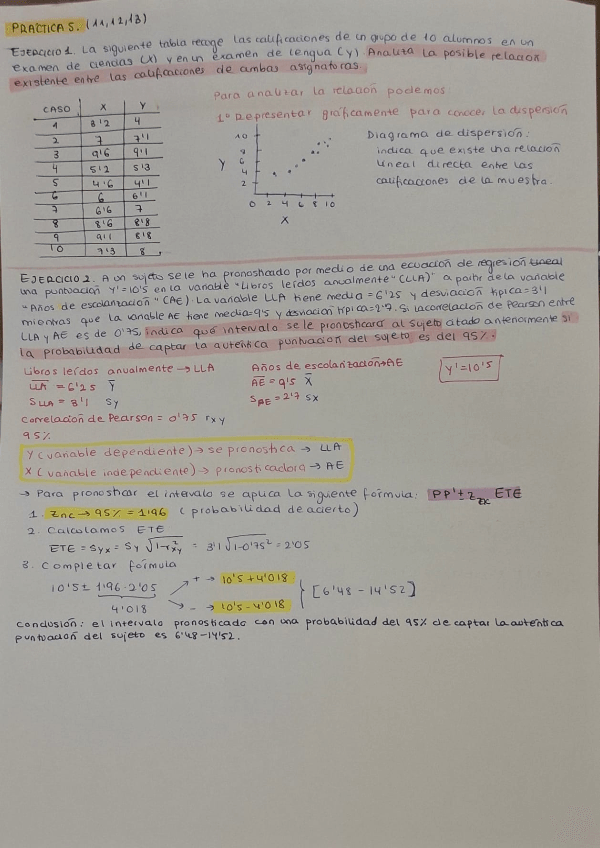 PRACTICA 5. (11,12,13)
EJERCICIO 1. La siguiente tabla recoge las calificaciones de un grupo de 10 alumnos en un
examen de ciencias (X) y en un examen de lengua (Y) Analiza la posible relacion
existente entre las calificaciones de ambas asignaturas.
CASO X Y
1 8'2 4
2 7 7'1
3 9'6 9'1
4 5'2 5'3
5 4'6 4'1
6 6 6'1
7 6'6 7
8 8'6 8'8
9 9'1 8'8
10 7'3 8
Para analizar la relación podemos
1º Representar gráficamente para conocer la dispersión
10
8
6
4
2
Y
0 2 4 6 8 10
X
Diagrama de dispersión:
indica que existe una relación
lineal directa entre las
calificaciones de la muestra.
EJERCICIO 2. A un sujeto se le ha pronosticado por medio de una ecuacion de regresion lineal
una puntuacion Y'=10'5 en la variable "Libros leídos anualmente" (LLA)' a partir de la variable
"Años de escolarización" (AE). La variable LLA tiene media=6'25 y desviación típica=3'1
mientras que la variable AE tiene media=9'5 y desviación típica=2'7. Si la correlación de Pearson entre
LLA y AE es de 0'75, indica qué intervalo se le pronosticará al sujeto citado anteriormente si
la probabilidad de captar la autentica puntuacion del sujeto es del 95%.
Libros leídos anualmente → LLA
LLA = 6'25 Y
S LLA = 3'1 Sy
Años de escolarización → AE
AE = 9'5 X
S AE = 2'7 Sx
Y'=10'5
Correlación de Pearson = 0'75 rxy
95%
Y (variable dependiente) → se pronostica → LLA
X (variable independiente) → pronosticadora → AE
→ Para pronosticar el intervalo se aplica la siguiente fórmula: PP' ± Z ETE
1. Znc → 95% = 1'96 (probabilidad de acierto)
2. Calculamos ETE
ETE = Syx = Sy √1-r²xy = 3'1 √1-0'75² = 2'05
3. Completar fórmula
10'5 ± 1'96 · 2'05
4'018
+ → 10'5 + 4'018
- → 10'5 - 4'018
[6'48 - 14'52]
Conclusión: el intervalo pronosticado con una probabilidad del 95% de captar la auténtica
puntuación del sujeto es 6'48-14'52.